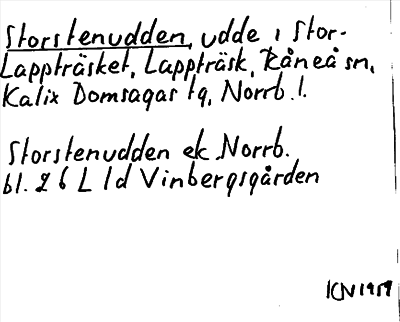 Storstenudden, udde i Stor-
Lappträsket, Lappträsk, Råneå sn,
Kalix Domsagas tg, Norrb. l.
Storstenudden ek Norrb.
bl. 26 L 1d Vinbergsgården
KN 1959